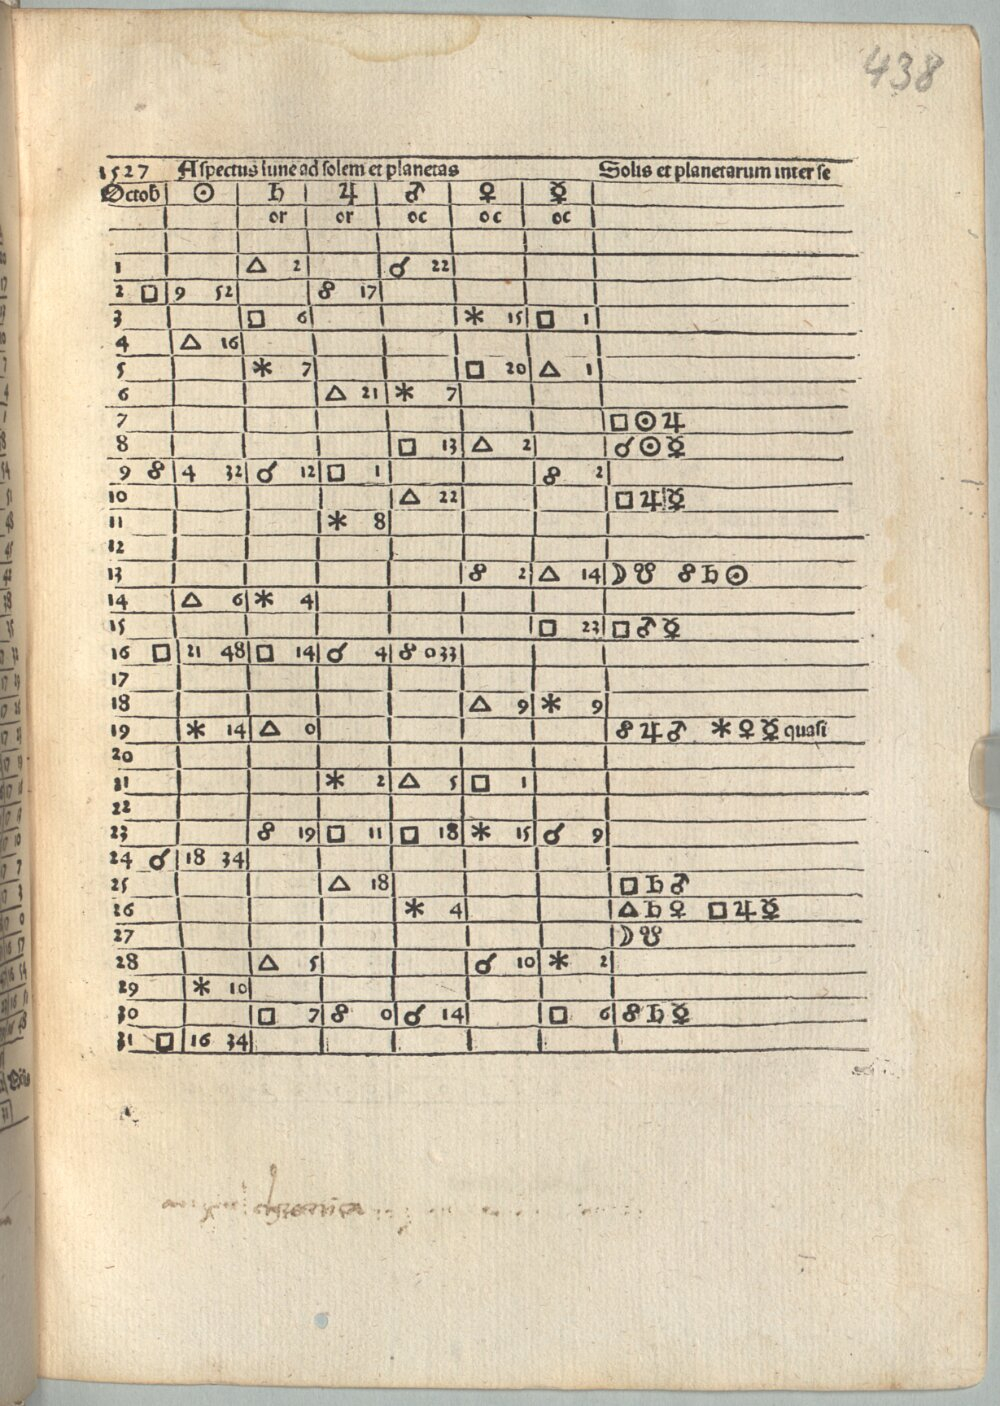 438
1527 Aspectus lune ad solem et planetas Solis et planetarum inter se
Octob ☉ ♄ ♃ ♂ ♀ ☿
or or oc oc oc
1 △ 2 ☌ 22
2 □ 9 52 ☍ 17
3 □ 6 ⚹ 15 □ 1
4 △ 16
5 ⚹ 7 □ 20 △ 1
6 △ 21 ⚹ 7
7 □ ☉ ♃
8 □ 13 △ 2 ☌ ☉ ☿
9 ☍ 4 32 ☌ 12 □ 1 ☍ 2
10 △ 22 □ ♃ ☿
11 ⚹ 8
12
13 ☍ 2 △ 14 ☽ ☋ ☍ ♄ ☉
14 △ 6 ⚹ 4
15 □ 23 □ ♂ ☿
16 □ 21 48 □ 14 ☌ 4 ☍ 033
17
18 △ 9 ⚹ 9
19 ⚹ 14 △ 0 ☍ ♃ ♂ ⚹ ♀ ☿ quasi
20
31 ⚹ 2 △ 5 □ 1
22
23 ☍ 19 □ 11 □ 18 ⚹ 15 ☌ 9
24 ☌ 18 34
25 △ 18 □ ♄ ♂
26 ⚹ 4 △ ♄ ♀ □ ♃ ☿
27 ☽ ☋
28 △ 5 ☌ 10 ⚹ 2
29 ⚹ 10
30 □ 7 ☍ 0 ☌ 14 □ 6 ☍ ♄ ☿
31 □ 16 34